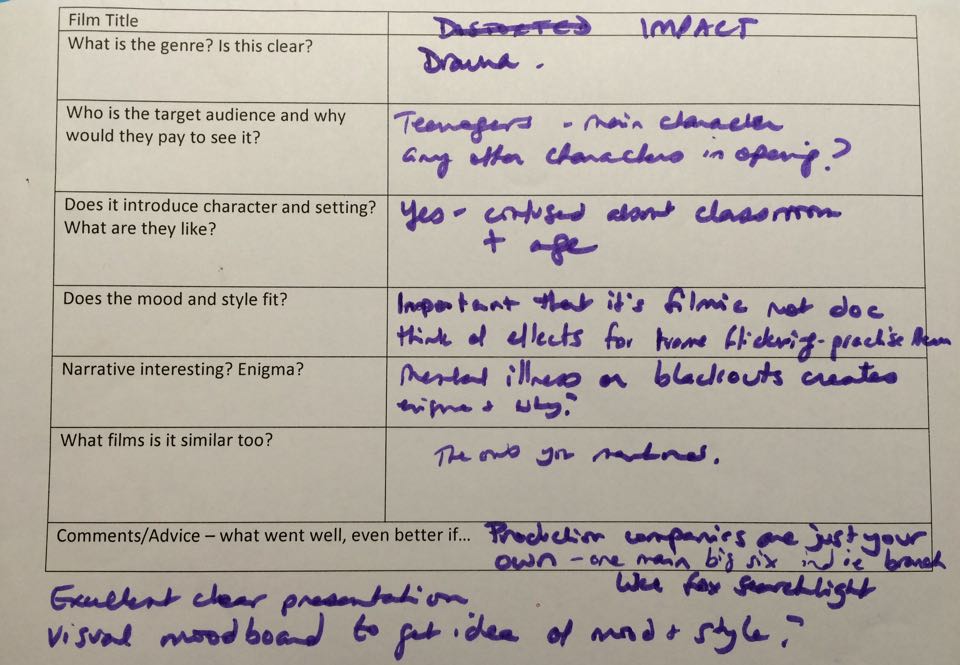 Film Title
DISTORTED IMPACT
What is the genre? Is this clear?
Drama.
Who is the target audience and why
would they pay to see it?
Teenagers - main character
any other characters in opening?
Does it introduce character and setting?
What are they like?
Yes - confused about classroom
+ age
Does the mood and style fit?
Important that it's filmic not doc
think of effects for frame flickering - practise them
Narrative interesting? Enigma?
Mental illness or blackouts creates
enigma + why?
What films is it similar too?
The ones you mentioned.
Comments/Advice – what went well, even better if...
Production companies are just your
own - one main big six indie branch
like fox searchlight
Excellent clear presentation
Visual moodboard to get idea of mood + style?